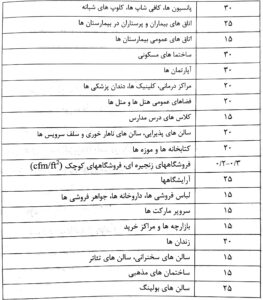 پانسیون ها، کافی شاپ ها، کلوپ های شبانه ۳۰
اتاق های بیماران و پرستاران در بیمارستان ها ۲۵
اتاق های عمومی بیمارستان ها ۱۵
ساختما های مسکونی ۳۰
آپارتمان ها ۳۰
مراکز درمانی، کلینیک ها، دندان پزشکی ها ۲۰
فضاهای عمومی هتل ها و متل ها ۲۰
کلاس های درس مدارس ۱۵
سالن های پذیرایی، سالن های ناهار خوری و سلف سرویس ها ۲۰
کتابخانه ها و موزه ها ۲۰
فروشگاههای زنجیره ای، فروشگاههای کوچک (cfm/ft²) ۰/۲-۰/۳
آرایشگاهها ۲۵
لباس فروشی ها، داروخانه ها، جواهر فروشی ها ۱۵
سوپر مارکت ها ۱۵
بازارچه ها و مراکز خرید ۱۵
زندان ها ۲۰
سالن های سخنرانی، سالن های تئاتر ۱۵
ساختمان های مذهبی ۱۵
سالن های بولینگ ۲۵